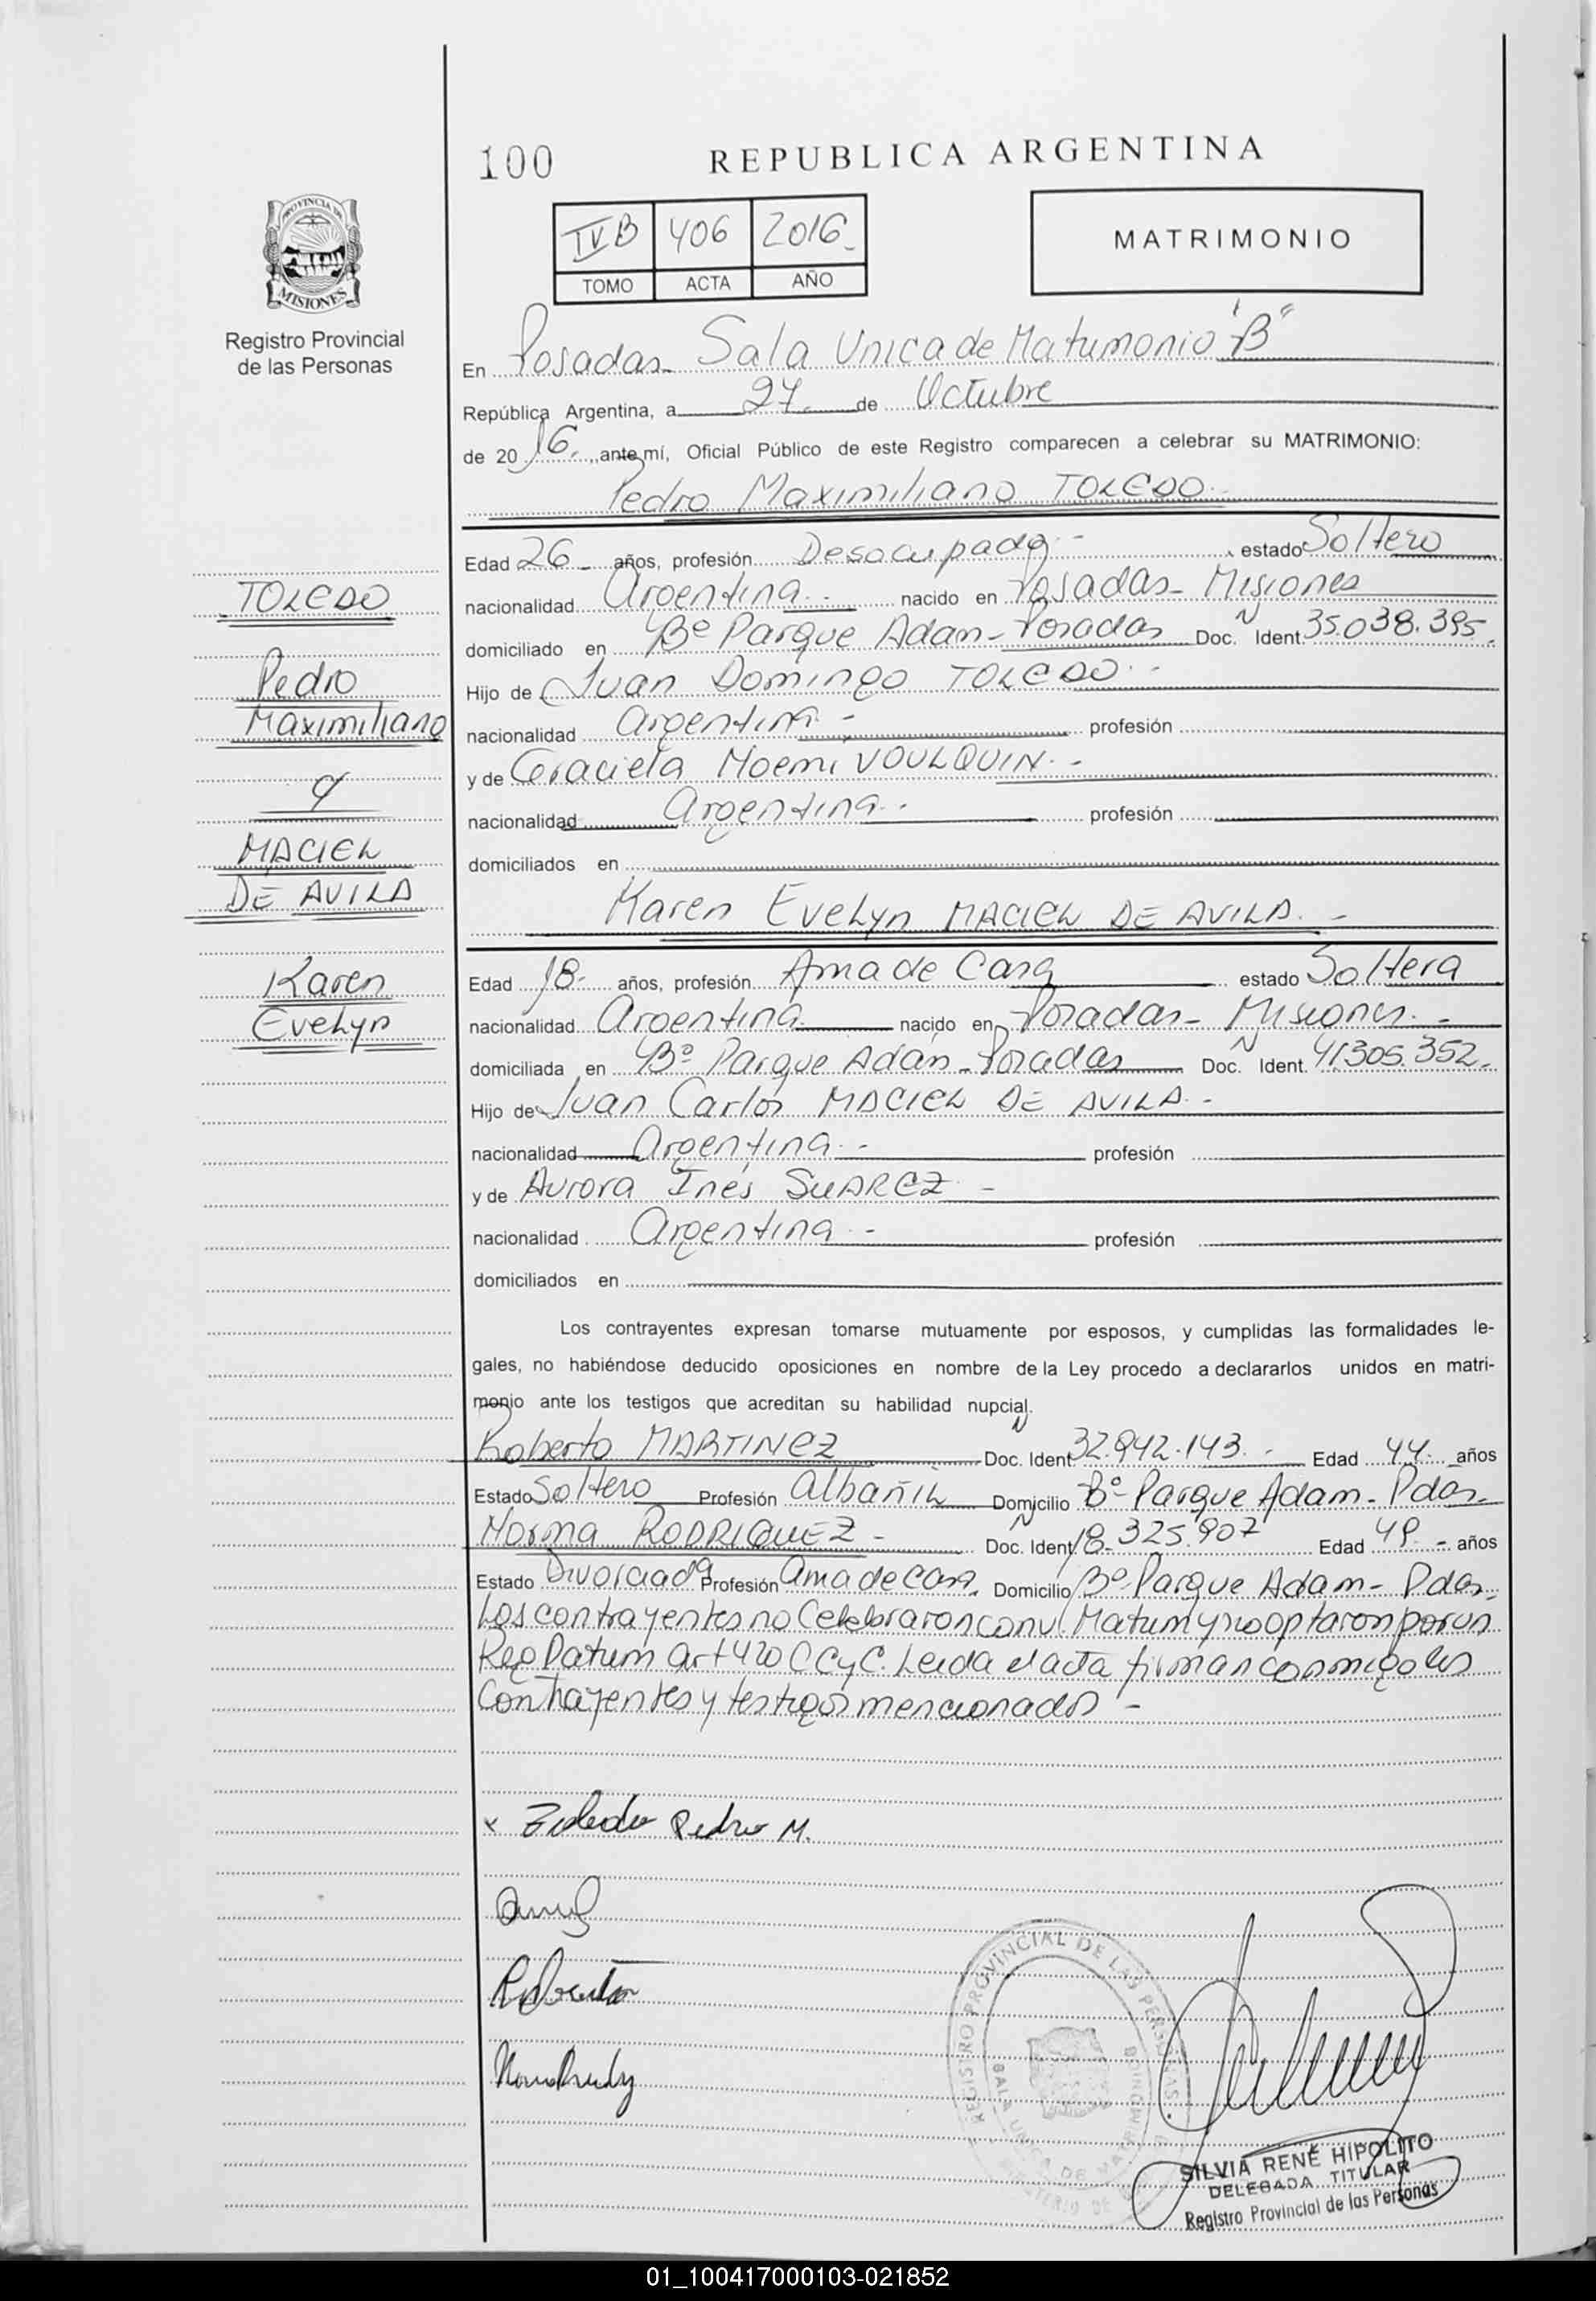 100
REPUBLICA ARGENTINA
PROVINCIA DE
MISIONES
Registro Provincial
de las Personas
IV B 406 2016
TOMO ACTA AÑO
MATRIMONIO
En Posadas - Sala Unica de Matrimonio "B"
República Argentina, a 27 de Octubre
de 2016, ante mí, Oficial Público de este Registro comparecen a celebrar su MATRIMONIO:
Pedro Maximiliano TOLEDO.-
Edad 26 años, profesión Desocupado - estado Soltero
TOLEDO
nacionalidad Argentina.- nacido en Posadas - Misiones
domiciliado en Bº Parque Adam - Posadas Doc. N Ident. 35.038.395.
Pedro
Hijo de Juan Domingo TOLEDO.-
Maximiliano
nacionalidad Argentina - profesión
y de Graciela Noemi VOULQUIN.-
y
nacionalidad Argentina.- profesión
MACIEL
domiciliados en
DE AVILA
Karen Evelyn MACIEL DE AVILA.-
Karen
Edad 18.- años, profesión Ama de Casa estado Soltera
Evelyn
nacionalidad Argentina nacido en Posadas - Misiones.-
domiciliada en Bº Parque Adán - Posadas Doc. N Ident. 41.305.352.
Hijo de Juan Carlos MACIEL DE AVILA.-
nacionalidad Argentina.- profesión
y de Aurora Ines SUAREZ.-
nacionalidad Argentina.- profesión
domiciliados en
Los contrayentes expresan tomarse mutuamente por esposos, y cumplidas las formalidades le-
gales, no habiéndose deducido oposiciones en nombre de la Ley procedo a declararlos unidos en matri-
monio ante los testigos que acreditan su habilidad nupcial.
Roberto MARTINEZ Doc. N Ident. 32.942.143.- Edad 44. años
Estado Soltero Profesión Albañil Domicilio Bº Parque Adam - Pdas.
Norma RODRIGUEZ - Doc. N Ident. 18.325.907 Edad 49.- años
Estado Divorciada Profesión Ama de casa. Domicilio Bº Parque Adam - Pdas.
Los contrayentes no Celebraron conv. Matrim y no optaron por un
Reg Patrim art 420 CCyC. Leida el acta firman conmigo los
Contrayentes y testigos mencionados -
x Toledo Pedro M.
Roberto
REGISTRO PROVINCIAL DE LAS PERSONAS
SALA UNICA DE MATRIMONIO B
SILVIA RENÉ HIPOLITO
DELEGADA TITULAR
Registro Provincial de las Personas
01_100417000103-021852